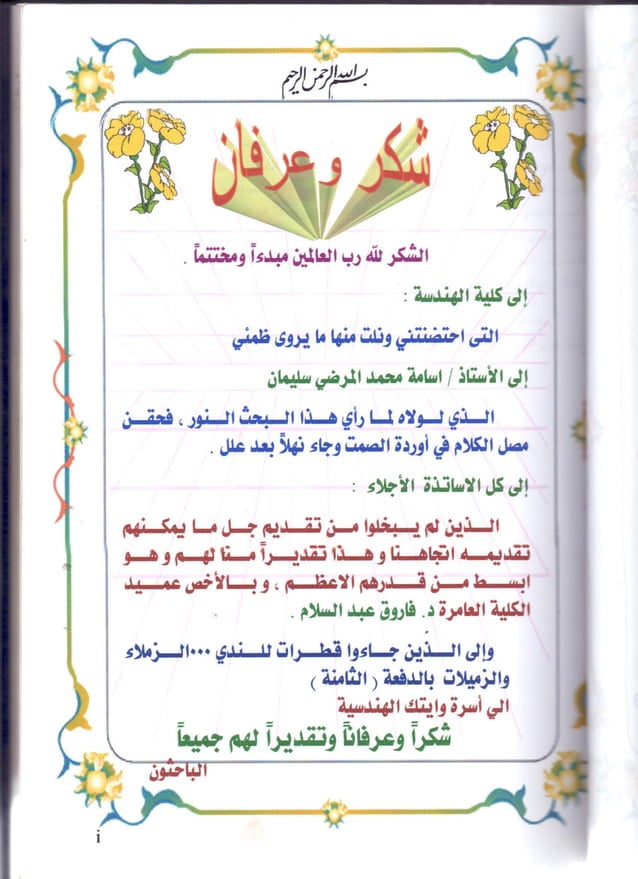 بسم الله الرحمن الرحيم
شكر و عرفان
الشكر لله رب العالمين مبدءاً ومختتماً .
إلى كلية الهندسة :
التى احتضنتني ونلت منها ما يروى ظمئي
إلى الأستاذ / اسامة محمد المرضي سليمان
الذي لولاه لما رأي هذا البحث النور ، فحقن
مصل الكلام في أوردة الصمت وجاء نهلاً بعد علل .
إلى كل الاساتذة الأجلاء :
الذين لم يبخلوا من تقديم جل ما يمكنهم
تقديمه اتجاهنا و هذا تقديراً منا لهم و هو
ابسط من قدرهم الاعظم ، و بالأخص عميد
الكلية العامرة د. فاروق عبد السلام .
وإلى الذين جاءوا قطرات للندي ...الزملاء
والزميلات بالدفعة ( الثامنة )
الي أسرة وايتك الهندسية
شكراً وعرفاناً وتقديراً لهم جميعاً
الباحثون
i